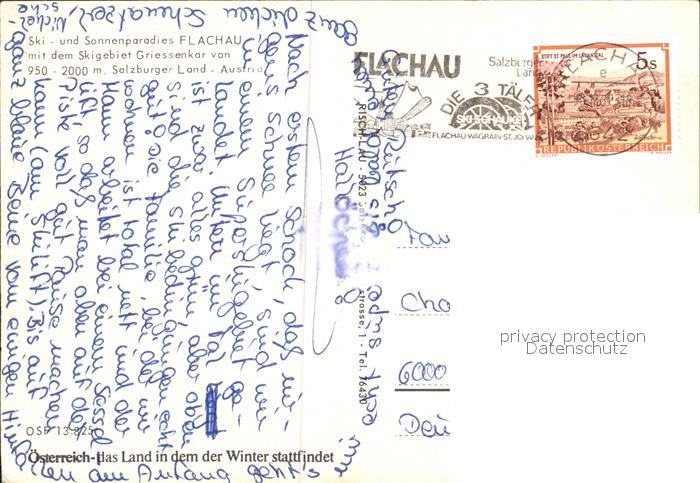 Ski - und Sonnenparadies FLACHAU
mit dem Skigebiet Griessenkar von
950 - 2000 m. Salzburger Land - Austria
FLACHAU
Salzburger
Land
DIE 3 TÄLER
SKISCHAUKEL
FLACHAU-WAGRAIN-ST.JOHANN
STIFT ST. PAUL IM LAVANTTAL
5s
REPUBLIK ÖSTERREICH
Hallo
Nach erstem Schock, daß nir-
gens Schnee liegt, sind wir
in einem Superskigebiet ge-
landet. Unten im Tal
ist zwar alles grün, aber oben
sind die Skibedingungen echt
gut. Die Familie bei der wir
wohnen ist total nett und der
Mann arbeitet bei einem Sessel-
lift so daß man oben auf der
Piste voll gut Pause machen
kann (am Skilift). Bis auf
ganz blaue Beine vom ewigen Hin-
fallen am Anfang geht's mir
echt super
6000
privacy protection
Datenschutz
strasse, 1 - Tel. 76430
OSP 13.825
Österreich-das Land in dem der Winter stattfindet